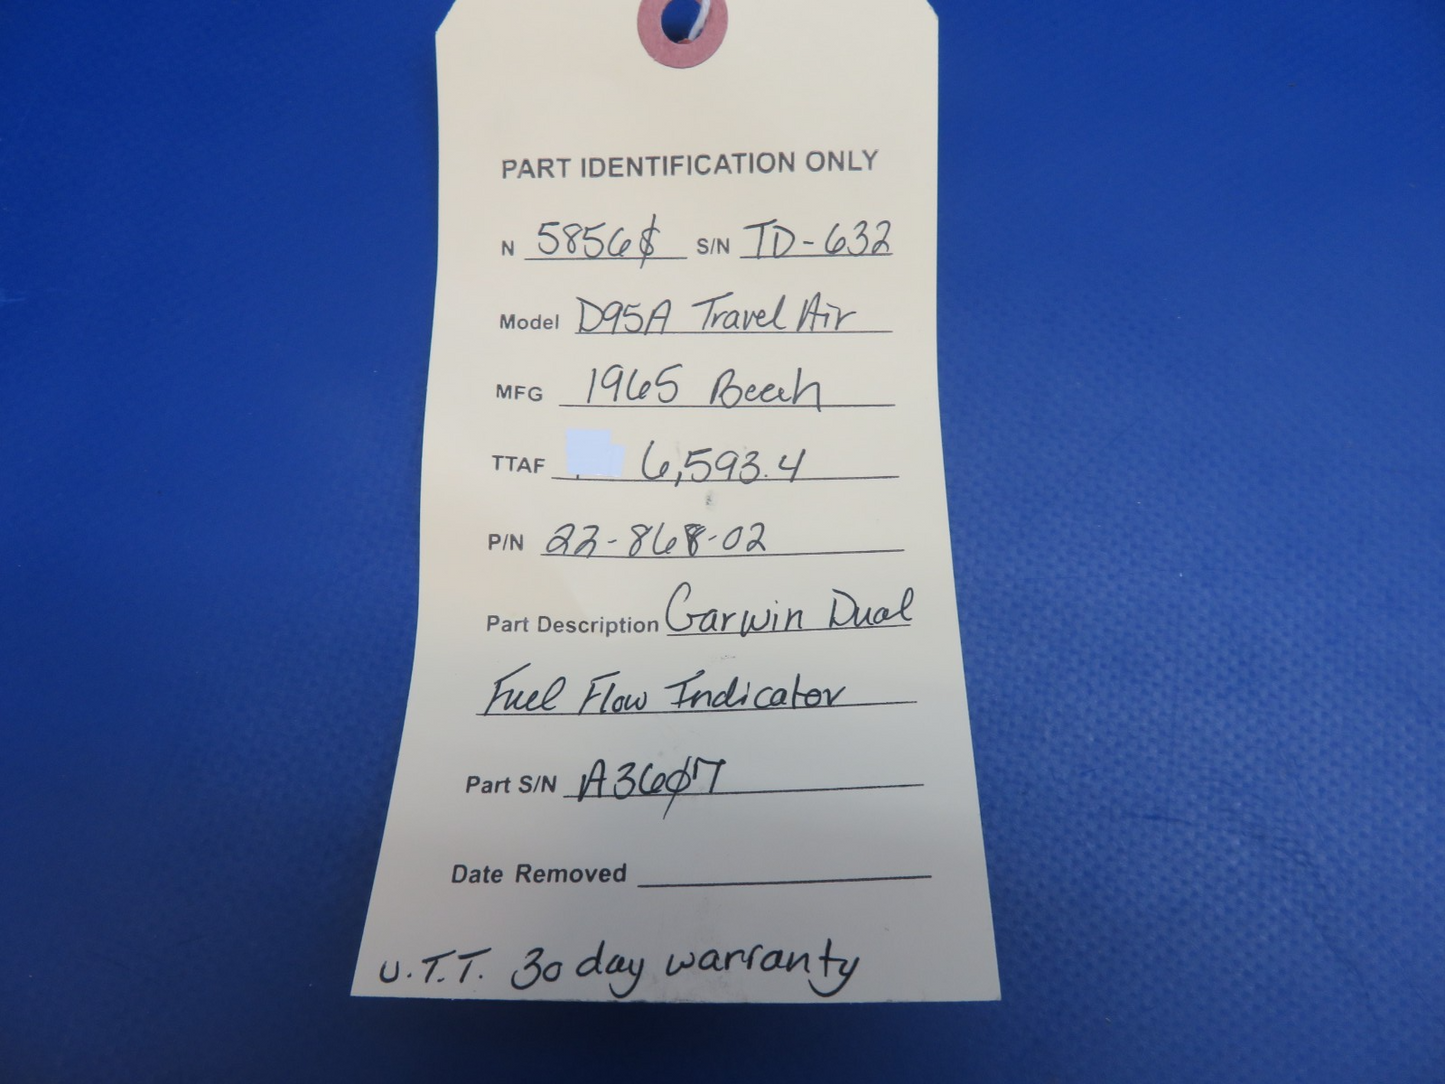 PART IDENTIFICATION ONLY
N 5856$ S/N TD-632
Model D95A Travel Air
MFG 1965 Beech
TTAF 6,593.4
P/N 22-868-02
Part Description Garwin Dual
Fuel Flow Indicator
Part S/N A36Ø7
Date Removed
U.T.T. 30 day warranty